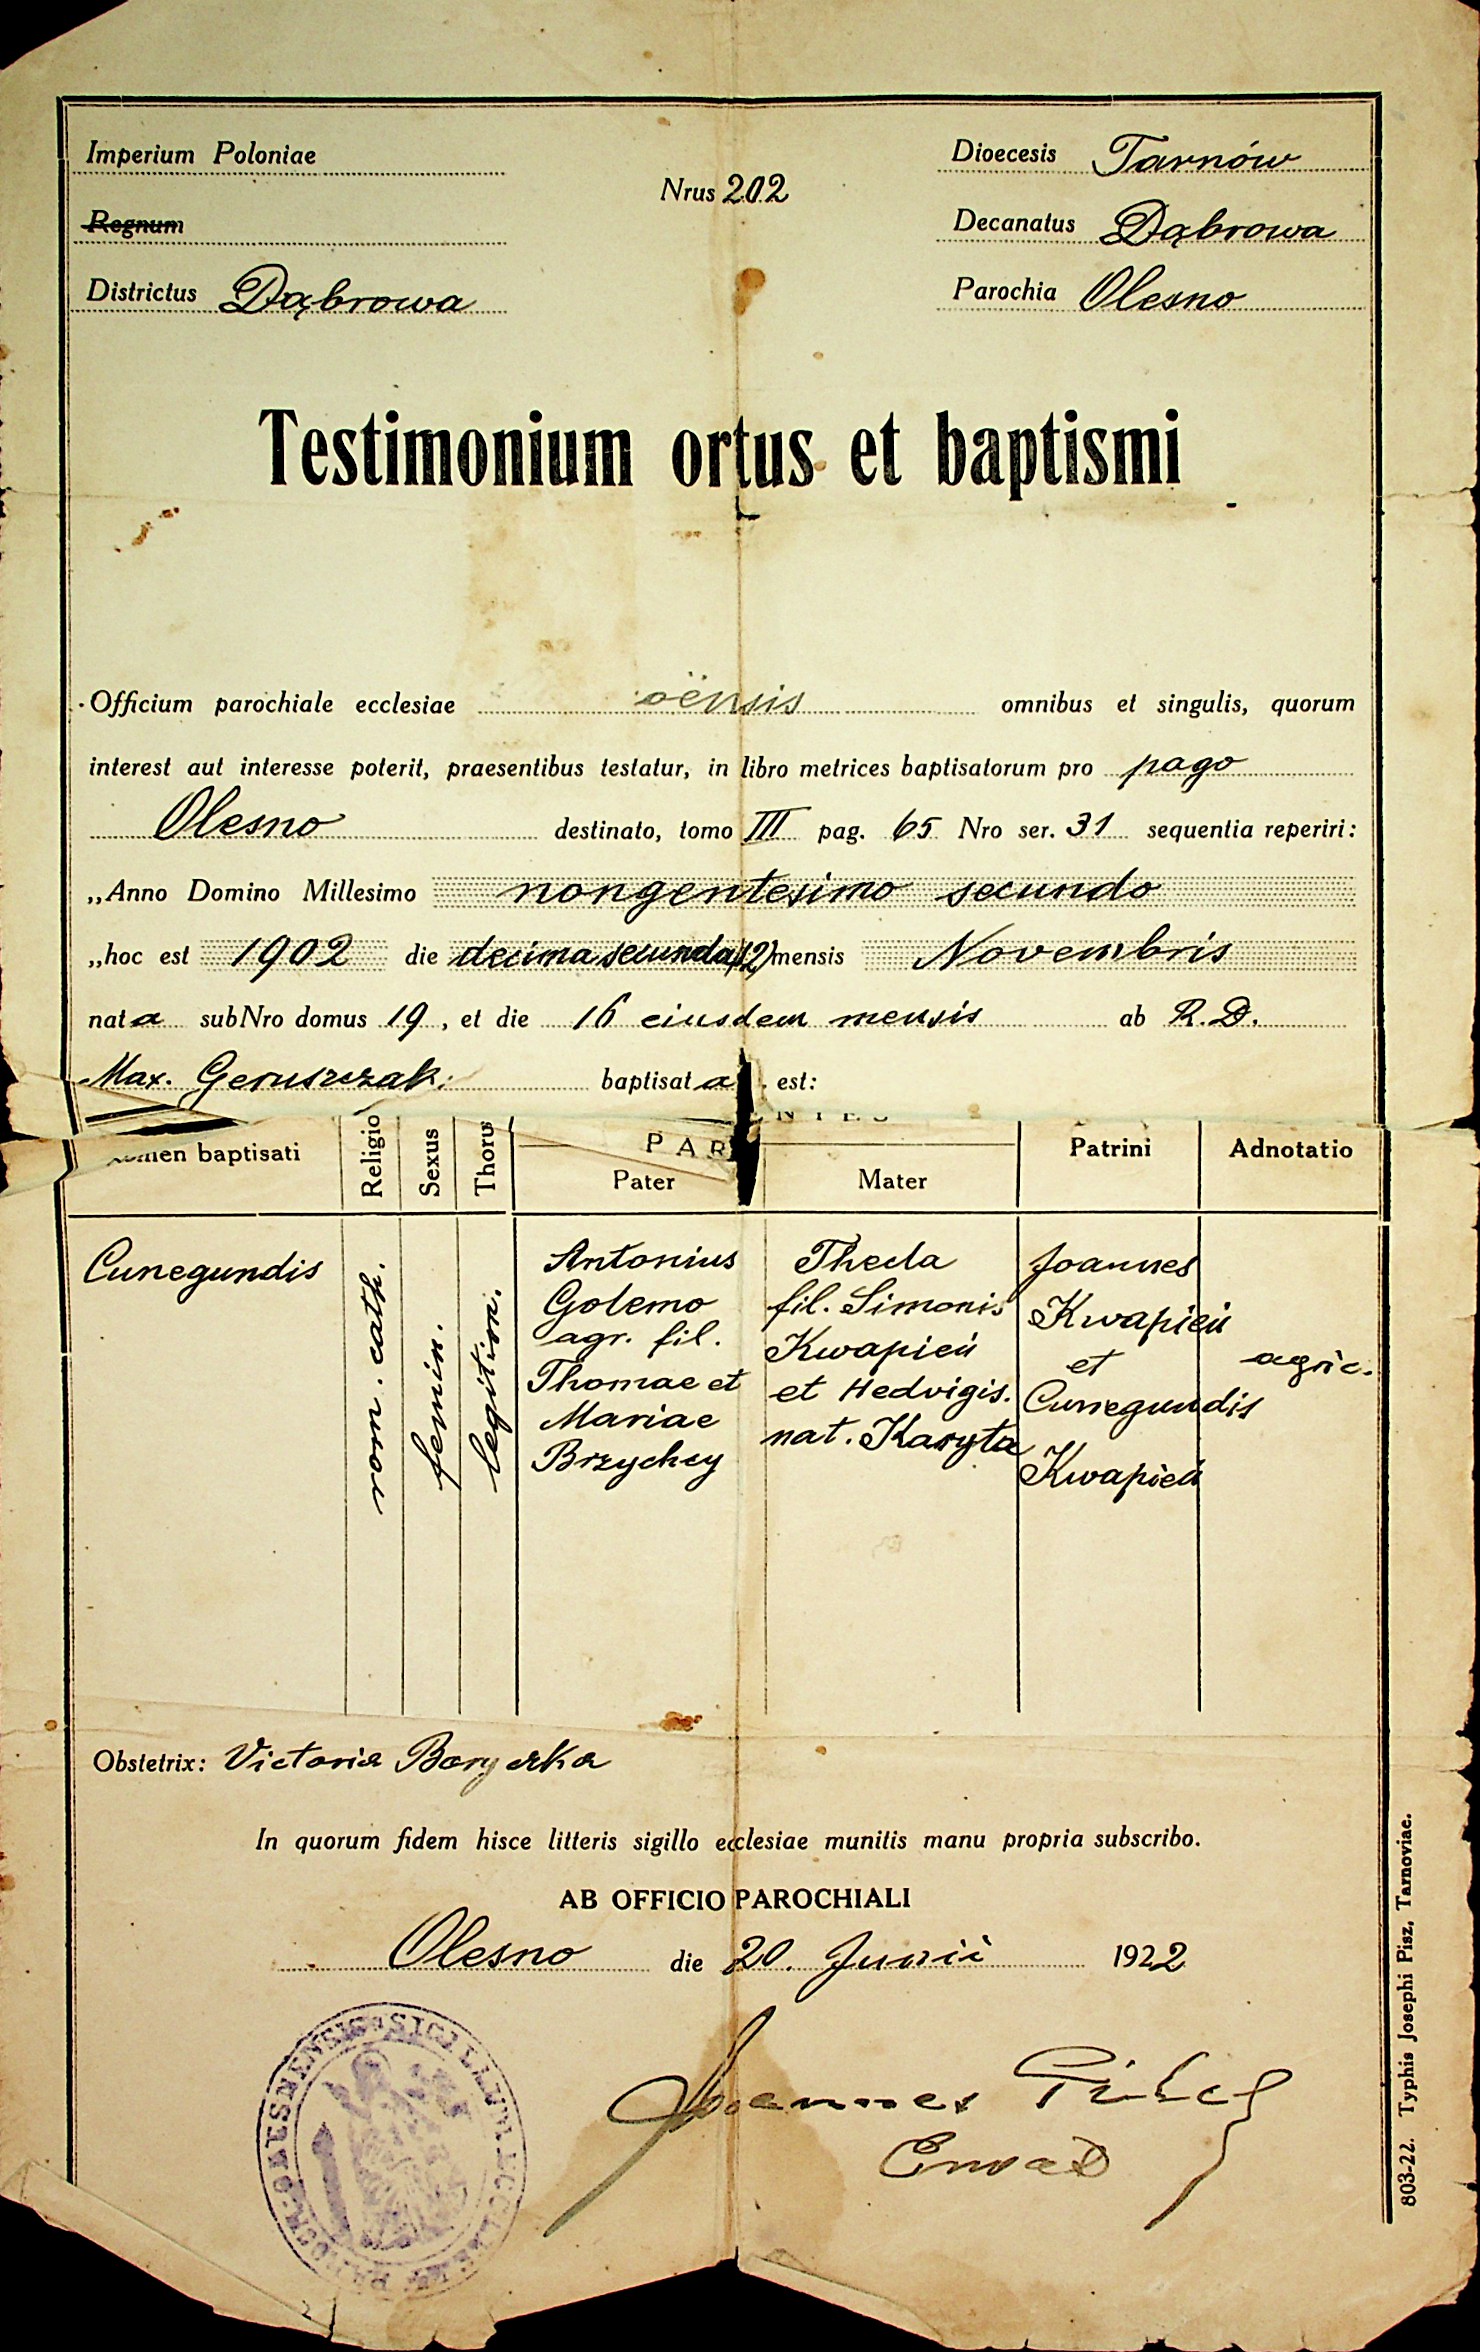 Imperium Poloniae
Nrus 202
Dioecesis Tarnów
Regnum
Decanatus Dąbrowa
Districtus Dąbrowa
Parochia Olesno
Testimonium ortus et baptismi
Officium parochiale ecclesiae oënsis omnibus et singulis, quorum
interest aut interesse poterit, praesentibus testatur, in libro metrices baptisatorum pro pago
Olesno destinato, tomo III pag. 65 Nro ser. 31 sequentia reperiri:
„Anno Domino Millesimo nongentesimo secundo
„hoc est 1902 die decima secunda (12) mensis Novembris
nata sub Nro domus 19, et die 16 eiusdem mensis ab R. D.
Max. Geruszczak: baptisata est:
baptisati
Religio
Sexus
Thorus
Pater
Mater
Patrini
Adnotatio
Cunegundis
rom. cath.
femin.
legitim.
Antonius
Golemo
agr. fil.
Thomae et
Mariae
Brzychcy
Thecla
fil. Simonis
Kwapień
et Hedvigis.
nat. Kasyta
Joannes
Kwapień
et
Cunegundis
Kwapień
agric.
Obstetrix: Victoria
In quorum fidem hisce litteris sigillo ecclesiae munitis manu propria subscribo.
AB OFFICIO PAROCHIALI
Olesno die 20. Junii 1922
Joannes
SIGILLUM ECCLESIAE PAROCH. OLESNENSIS
803-22. Typhis Josephi Pisz, Tarnoviae.